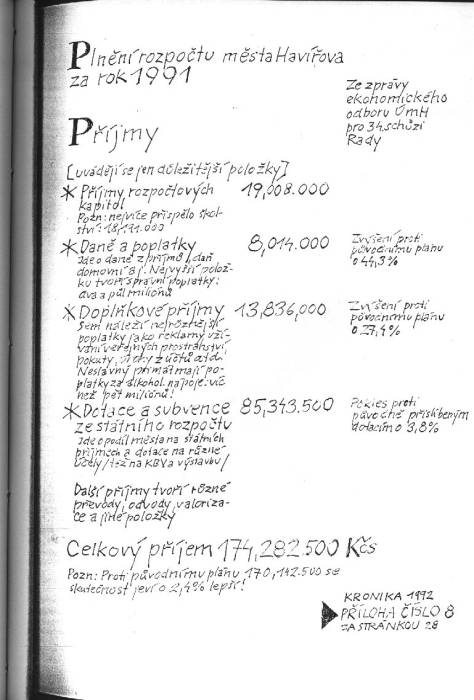 Plnění rozpočtu města Havířova
za rok 1991
Ze zprávy
ekonomického
odboru ÚmH
pro 34.schůzi
Rady
Příjmy
[uvádějí se jen důležitější položky]
* Příjmy rozpočtových 19,008.000
kapitol
Pozn: nejvíce přispělo škol-
ství: 18,111.000
* Daně a poplatky 8,014.000
Jde o daně z příjmů, daň
domovní aj. Nejvyšší polož-
ku tvoří správní poplatky:
dva a půl milionů
Zvýšení proti
původnímu plánu
o 44,3%
* Doplňkové příjmy 13,836,000
Sem náleží nejrůznější
poplatky jako reklamy, uží-
vání veřejných prostranství,
pokuty, úroky z účtů atd.
Neslavný primát mají po-
platky za alkohol. nápoje: víc
než pět milionů!
Zvýšení proti
původnímu plánu
o 27,4%
* Dotace a subvence 85,343.500
ze státního rozpočtu
Jde o podíl města na státních
příjmech a dotace na různé
účely /též na KBV a výstavbu/
Pokles proti
původně přislíbeným
dotacím o 3,8%
Další příjmy tvoří různé
převody, odvody, valoriza-
ce a jiné položky
Celkový příjem 174,282.500 Kčs
Pozn: Proti původnímu plánu 170,142.500 se
skutečnost jeví o 2,4% lepší!
KRONIKA 1992
PŘÍLOHA ČÍSLO 8
ZA STRÁNKOU 28